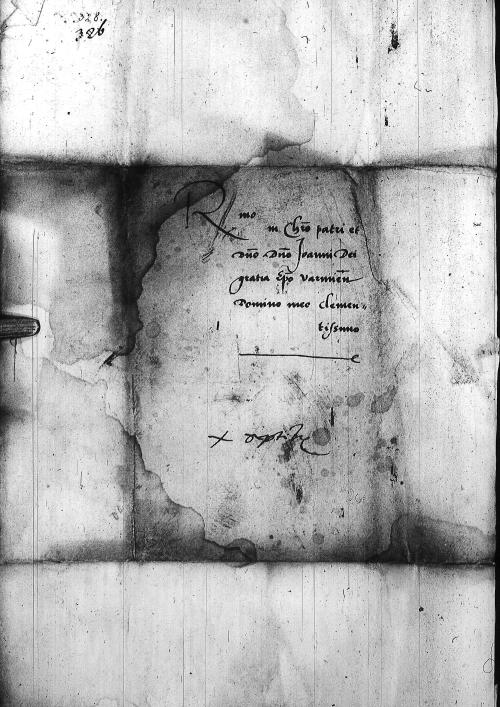 328.
326
Rmo
in Chro patri et
Dno Dno Joanni Dei
gratia Epo Varmien
Domino meo clemen-
tissimo